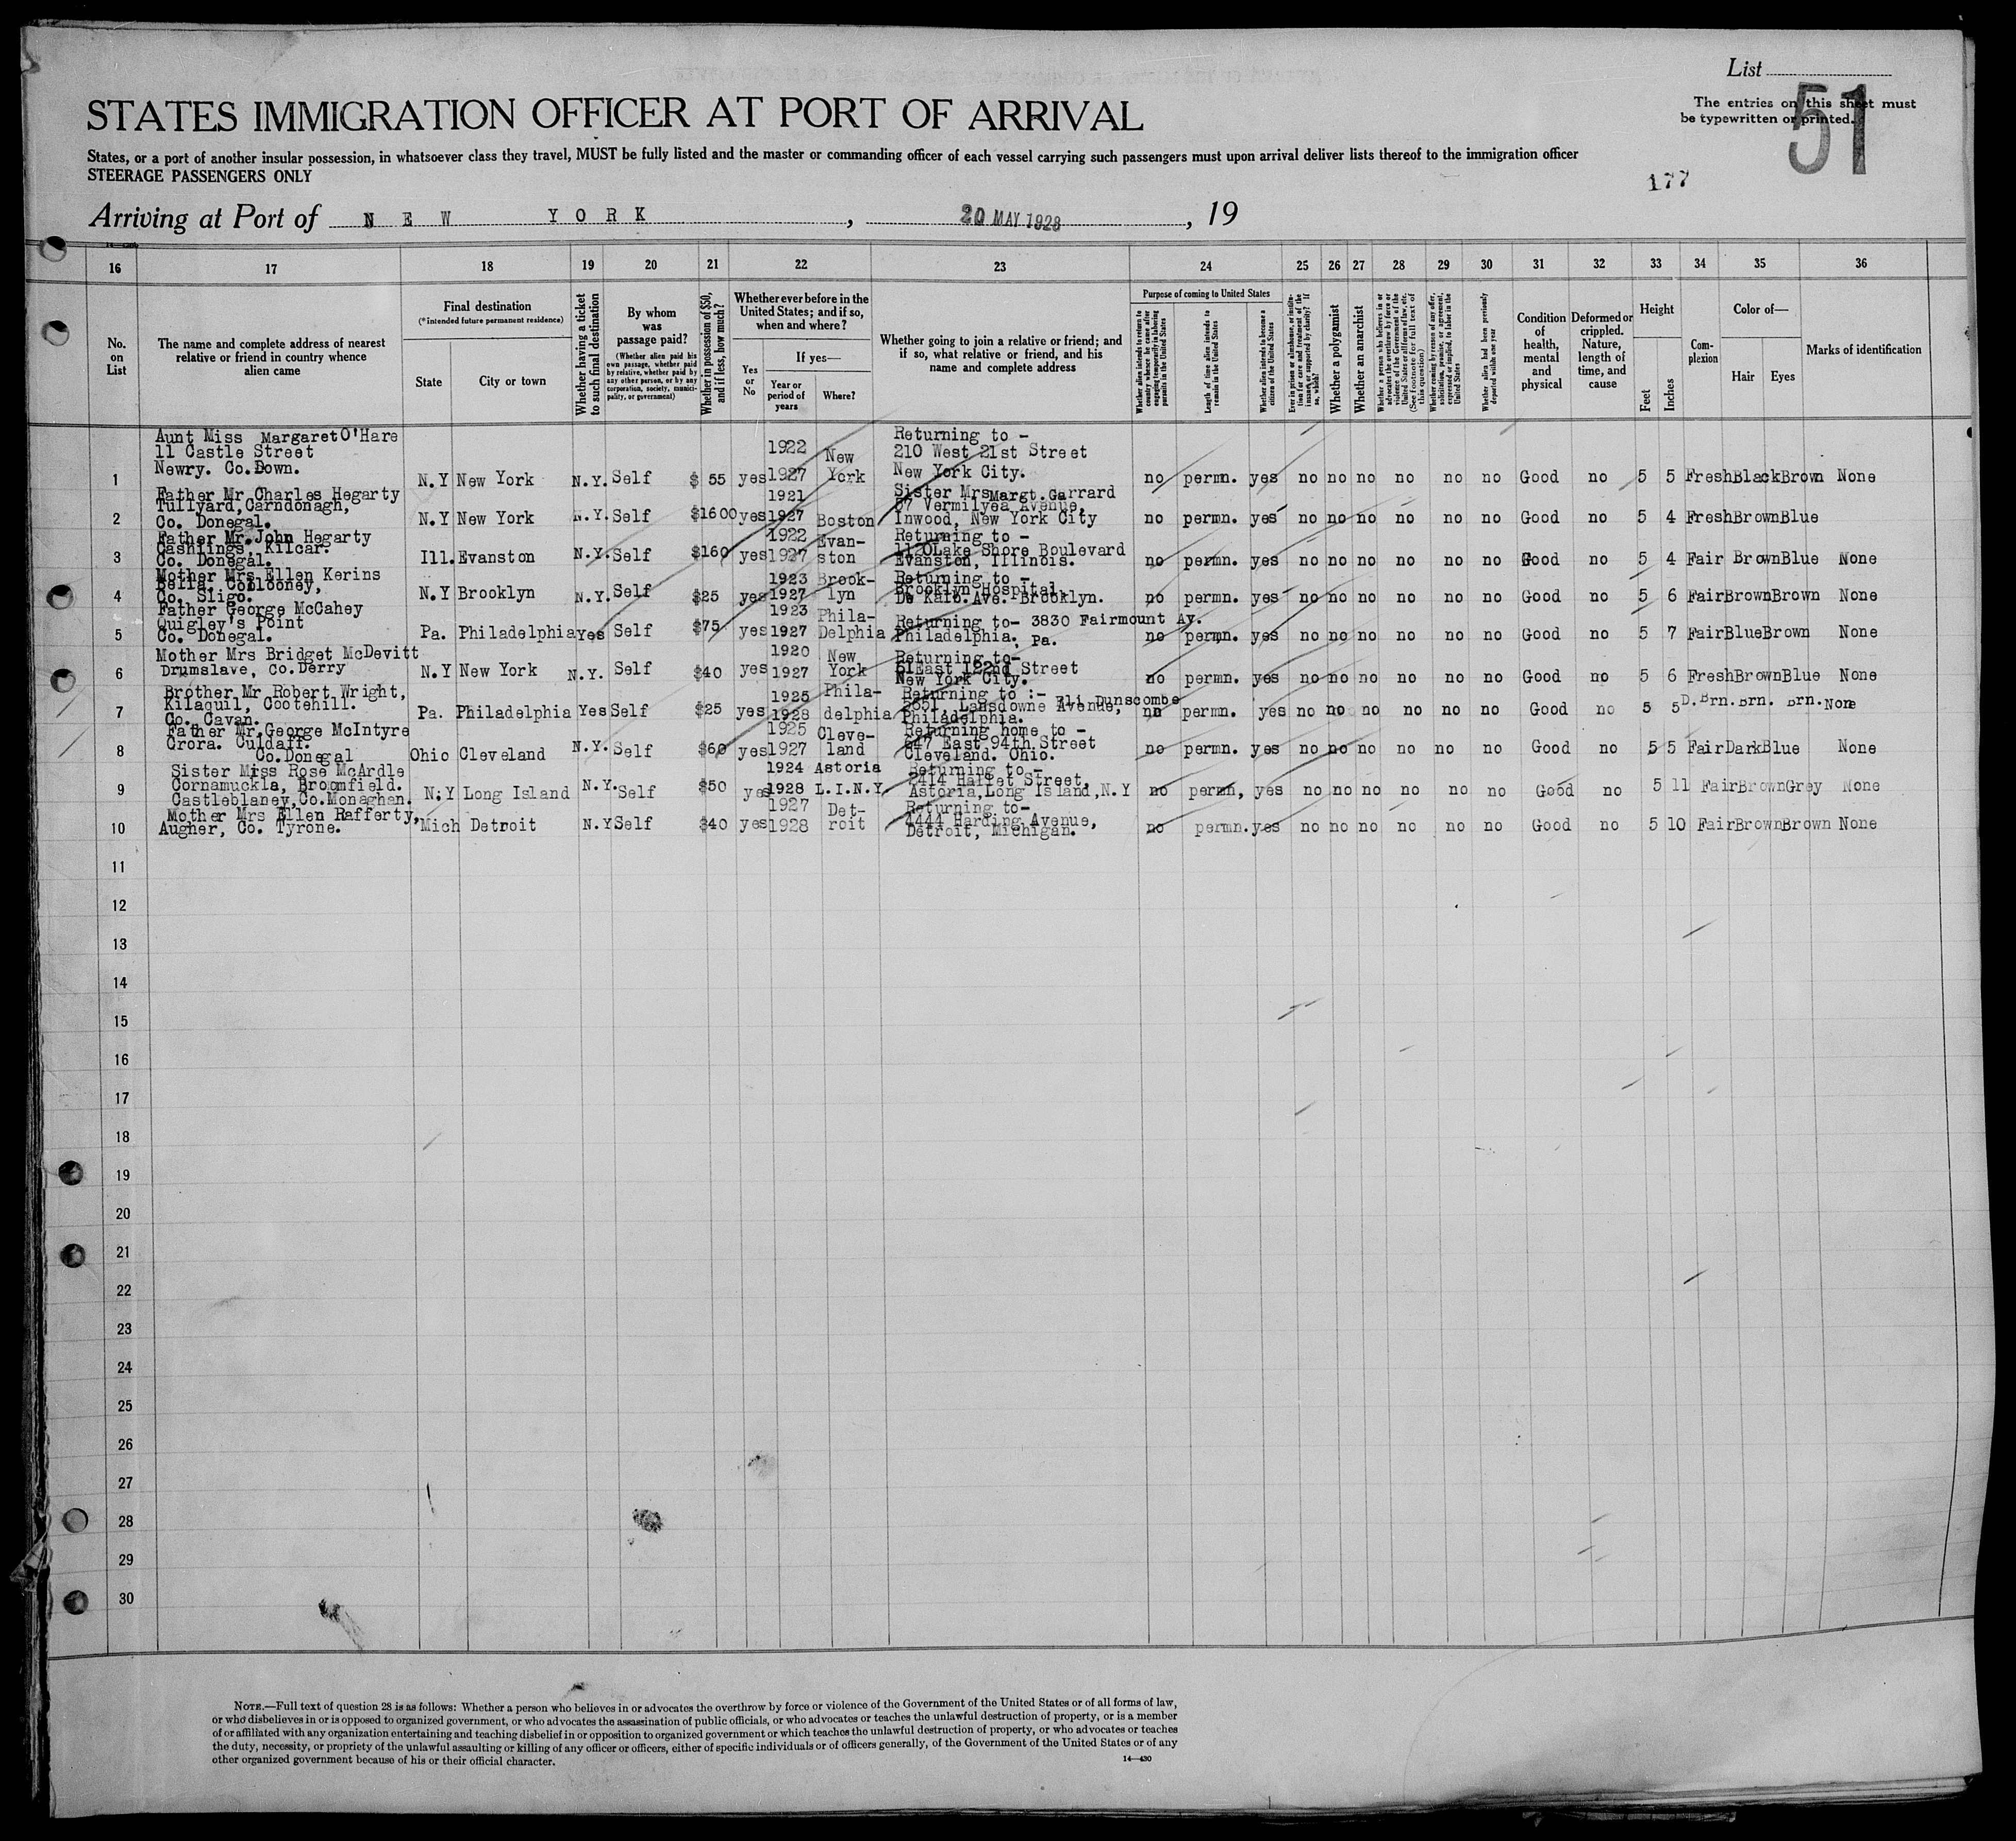 List
51
The entries on this sheet must
be typewritten or printed.
STATES IMMIGRATION OFFICER AT PORT OF ARRIVAL
States, or a port of another insular possession, in whatsoever class they travel, MUST be fully listed and the master or commanding officer of each vessel carrying such passengers must upon arrival deliver lists thereof to the immigration officer
STEERAGE PASSENGERS ONLY
177
Arriving at Port of NEW YORK, 20 MAY 1928, 19
16 17 18 19 20 21 22 23 24 25 26 27 28 29 30 31 32 33 34 35 36
No. on List
The name and complete address of nearest relative or friend in country whence alien came
Final destination
(*intended future permanent residence)
State
City or town
Whether having a ticket to such final destination
By whom was passage paid?
(Whether alien paid his own passage, whether paid by relative, whether paid by any other person, or by any corporation, society, municipality, or government)
Whether in possession of $50, and if less, how much?
Whether ever before in the United States; and if so, when and where?
Yes or No
If yes—
Year or period of years
Where?
Whether going to join a relative or friend; and if so, what relative or friend, and his name and complete address
Purpose of coming to United States
Whether alien intends to return to country whence he came after engaging temporarily in laboring pursuits in the United States
Length of time alien intends to remain in the United States
Whether alien intends to become a citizen of the United States
Ever in prison or almshouse, or institution for care and treatment of the insane, or supported by charity? If so, which?
Whether a polygamist
Whether an anarchist
Whether a person who believes in or advocates the overthrow by force or violence of the Government of the United States or all forms of law, etc. (See footnote for full text of this question)
Whether coming by reason of any offer, solicitation, promise, or agreement, expressed or implied, to labor in the United States
Whether alien had been previously deported within one year
Condition of health, mental and physical
Deformed or crippled. Nature, length of time, and cause
Height
Feet
Inches
Complexion
Color of—
Hair
Eyes
Marks of identification
1 Aunt Miss Margaret O'Hare 11 Castle Street Newry. Co.Down. N.Y New York N.Y. Self $ 55 yes 1922 1927 New York Returning to - 210 West 21st Street New York City. no permn. yes no no no no no no Good no 5 5 Fresh Black Brown None
2 Father Mr Charles Hegarty Tullyard, Carndonagh, Co. Donegal. N.Y New York N.Y. Self $1600 yes 1921 1927 Boston Sister Mrs Margt. Garrard 57 Vermilyea Avenue, Inwood, New York City no permn. yes no no no no no no Good no 5 4 Fresh Brown Blue
3 Father Mr. John Hegarty Cashlings. Kilcar. Co. Donegal. Ill. Evanston N.Y. Self $160 yes 1922 1927 Evan-ston Returning to - 1120 Lake Shore Boulevard Evanston, Illinois. no permn. yes no no no no no no Good no 5 4 Fair Brown Blue None
4 Mother Mrs Ellen Kerins Collooney, Co. Sligo. N.Y Brooklyn N.Y. Self $25 yes 1923 1927 Brook-lyn Returning to - Brooklyn Hospital, De Kalb. Ave. Brooklyn. no permn. yes no no no no no no Good no 5 6 Fair Brown Brown None
5 Father George McCahey Quigley's Point Co. Donegal. Pa. Philadelphia Yes Self $75 yes 1923 1927 Phila-Delphia Returning to- 3830 Fairmount Av. Philadelphia. Pa. no permn. yes no no no no no no Good no 5 7 Fair Blue Brown None
6 Mother Mrs Bridget McDevitt Drumslave, Co.Derry N.Y New York N.Y. Self $40 yes 1920 1927 New York Returning to- 51 East 122nd Street New York City. no permn. yes no no no no no no Good no 5 6 Fresh Brown Blue None
7 Brother Mr Robert Wright, Kilaquil, Cootehill. Co. Cavan. Pa. Philadelphia Yes Self $25 yes 1925 1928 Phila-delphia Returning to :- Eli Dunscombe 5351, Lansdowne Avenue, Philadelphia. no permn. yes no no no no no no Good no 5 5 D.Brn. Brn. Brn. None
8 Father Mr George McIntyre Crora. Culdaff. Co.Donegal Ohio Cleveland N.Y. Self $60 yes 1925 1927 Cleve-land Returning home to - 647 East 94th Street Cleveland. Ohio. no permn. yes no no no no no no Good no 5 5 Fair Dark Blue None
9 Sister Miss Rose McArdle Cornamuckla, Broomfield. Castleblaney, Co.Monaghan. N.Y Long Island N.Y. Self $50 yes 1924 1928 Astoria L.I.N.Y. Returning to - 2414 Hallet Street, Astoria, Long Island, N.Y no permn, yes no no no no no no Good no 5 11 Fair Brown Grey None
10 Mother Mrs Ellen Rafferty, Augher, Co. Tyrone. Mich Detroit N.Y Self $40 yes 1927 1928 Det-roit Returning to- 4444 Harding Avenue, Detroit, Michigan. no permn. yes no no no no no no Good no 5 10 Fair Brown Brown None
11
12
13
14
15
16
17
18
19
20
21
22
23
24
25
26
27
28
29
30
NOTE.—Full text of question 28 is as follows: Whether a person who believes in or advocates the overthrow by force or violence of the Government of the United States or of all forms of law,
or who disbelieves in or is opposed to organized government, or who advocates the assassination of public officials, or who advocates or teaches the unlawful destruction of property, or is a member
of or affiliated with any organization entertaining and teaching disbelief in or opposition to organized government or which teaches the unlawful destruction of property, or who advocates or teaches
the duty, necessity, or propriety of the unlawful assaulting or killing of any officer or officers, either of specific individuals or of officers generally, of the Government of the United States or of any
other organized government because of his or their official character.
14—430